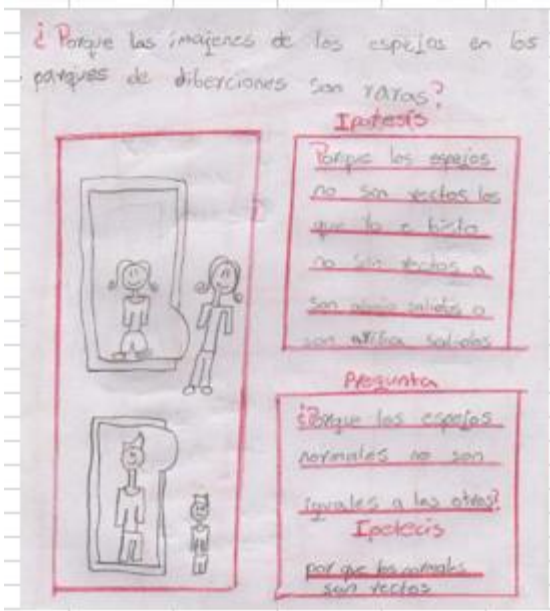 ¿Porque las imajenes de los espejos en los
parques de diberciones son raras?
Ipotesis
Porque los espejos
no son rectos los
que yo e bisto
no son rectos o
son abajo salidos o
son arriba salidos
Pregunta
¿Porque los espejos
normales no son
iguales a los otros?
Ipotecis
por que los normales
son rectos